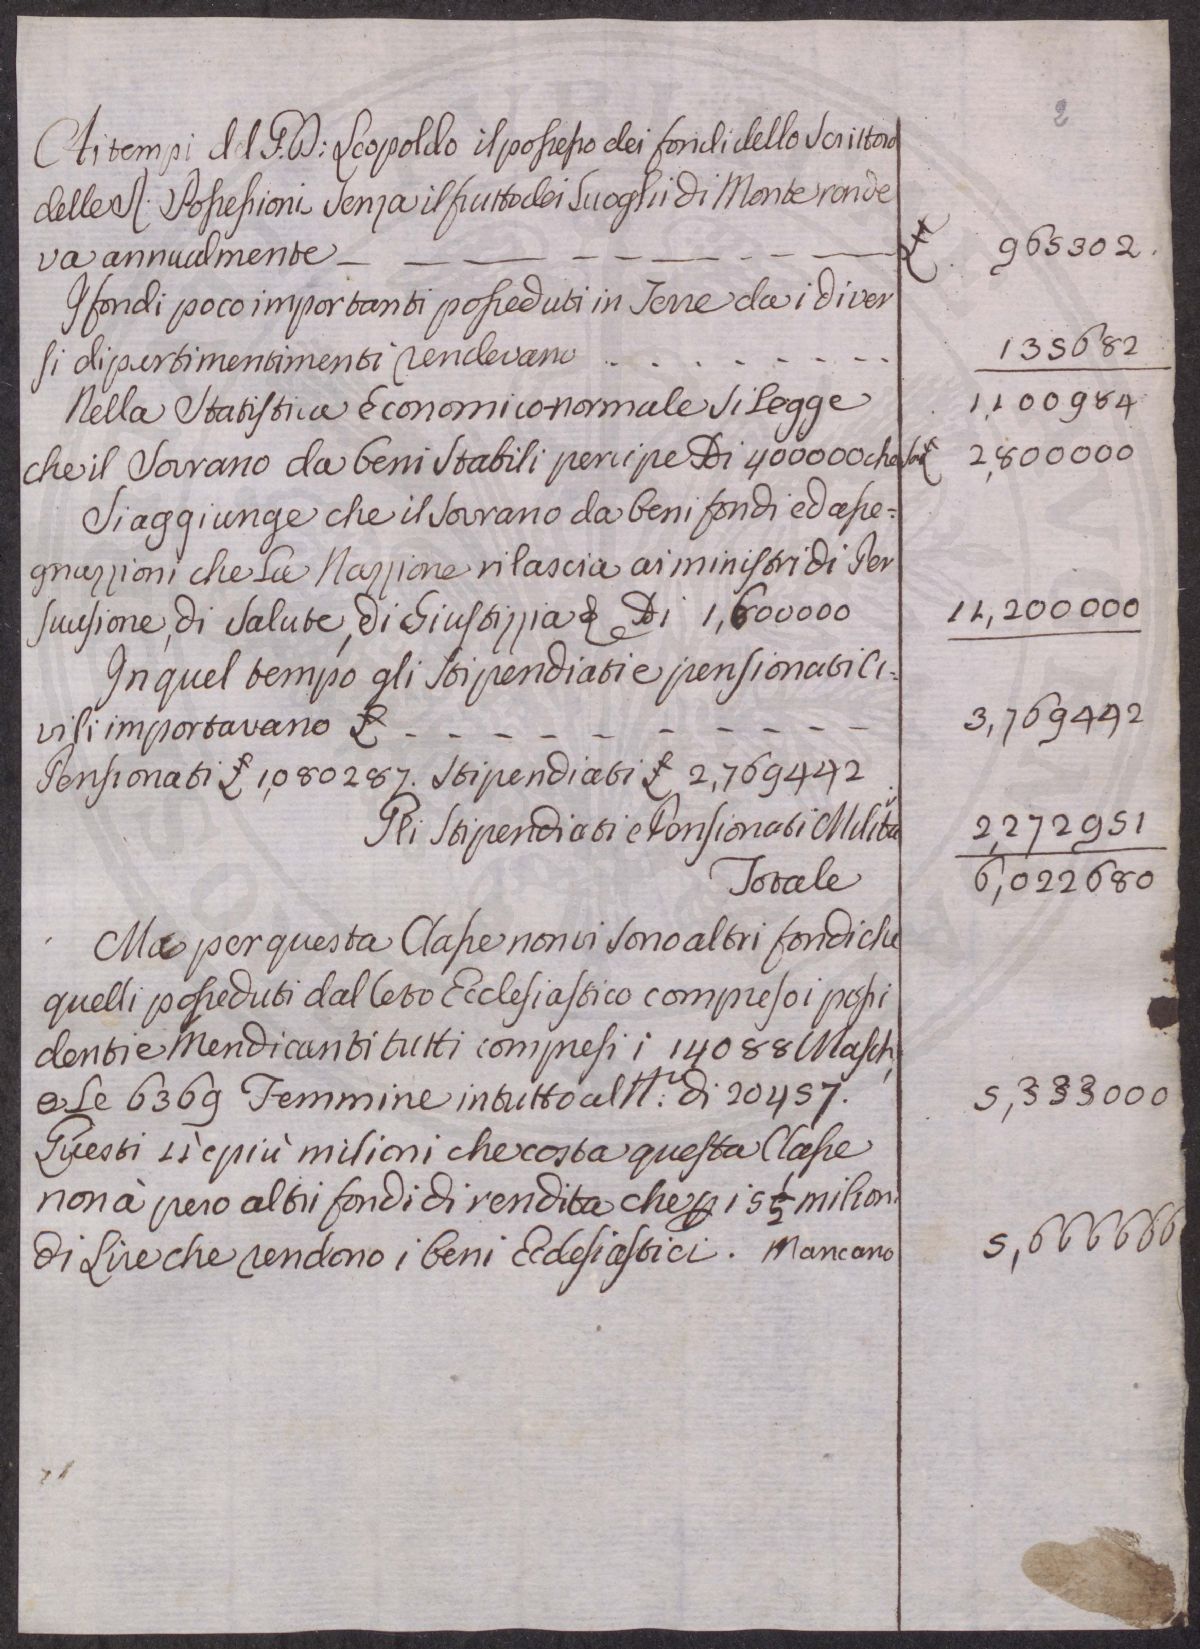 2
Ai tempi del G.D: Leopoldo il possesso dei fondi dello Scrittoio
delle R. Possessioni senza il frutto dei Luoghi di Monte rende
va annualmente — — — — — — — £ 965302.
I fondi poco importanti posseduti in Terre da i diver
si dipartimentimenti rendevano . . . . . . . . 135682
Nella Statistica Economico-normale si Legge 1,100984
che il Sovrano da beni stabili percipe Di 400000 che £ 2,800000
Si aggiunge che il Sovrano da beni fondi ed asse=
gnazzioni che La Nazzione rilascia ai ministri di Per
suasione, di Salute, di Giustizzia & Di 1,600000 11,200000
In quel tempo gli Stipendiati e pensionati ci=
vili importavano £ - - - - - - - - - 3,769442
Pensionati £ 1,080287. Stipendiati £ 2,769442
Gli Stipendiati e Pensionati Milita 2,272951
Totale 6,022680
Ma per questa Classe non vi sono altri fondi che
quelli posseduti dal Ceto Ecclesiastico compreso i possi
denti e Mendicanti tutti compresi i 14088 Masch,
e Le 6369 Femmine in tutto al N.º di 20457. 5,333000
Questi 11 e più milioni che costa questa Classe
non à pero altri fondi di rendita che p i 5 1/2 milion.
di Lire che rendono i beni Ecclesiastici. Mancano 5,666666